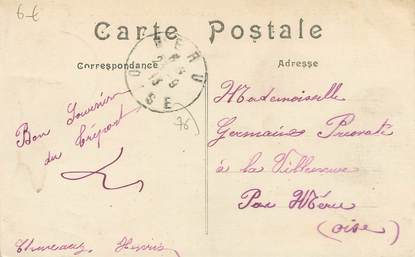 6-€
Carte Postale
Correspondance
Adresse
MERU
OISE
76
Bon Souvenir
du Tréport
Mademoiselle
Germaine
à la Villeneuve
Par Méru
(Oise)
Henri